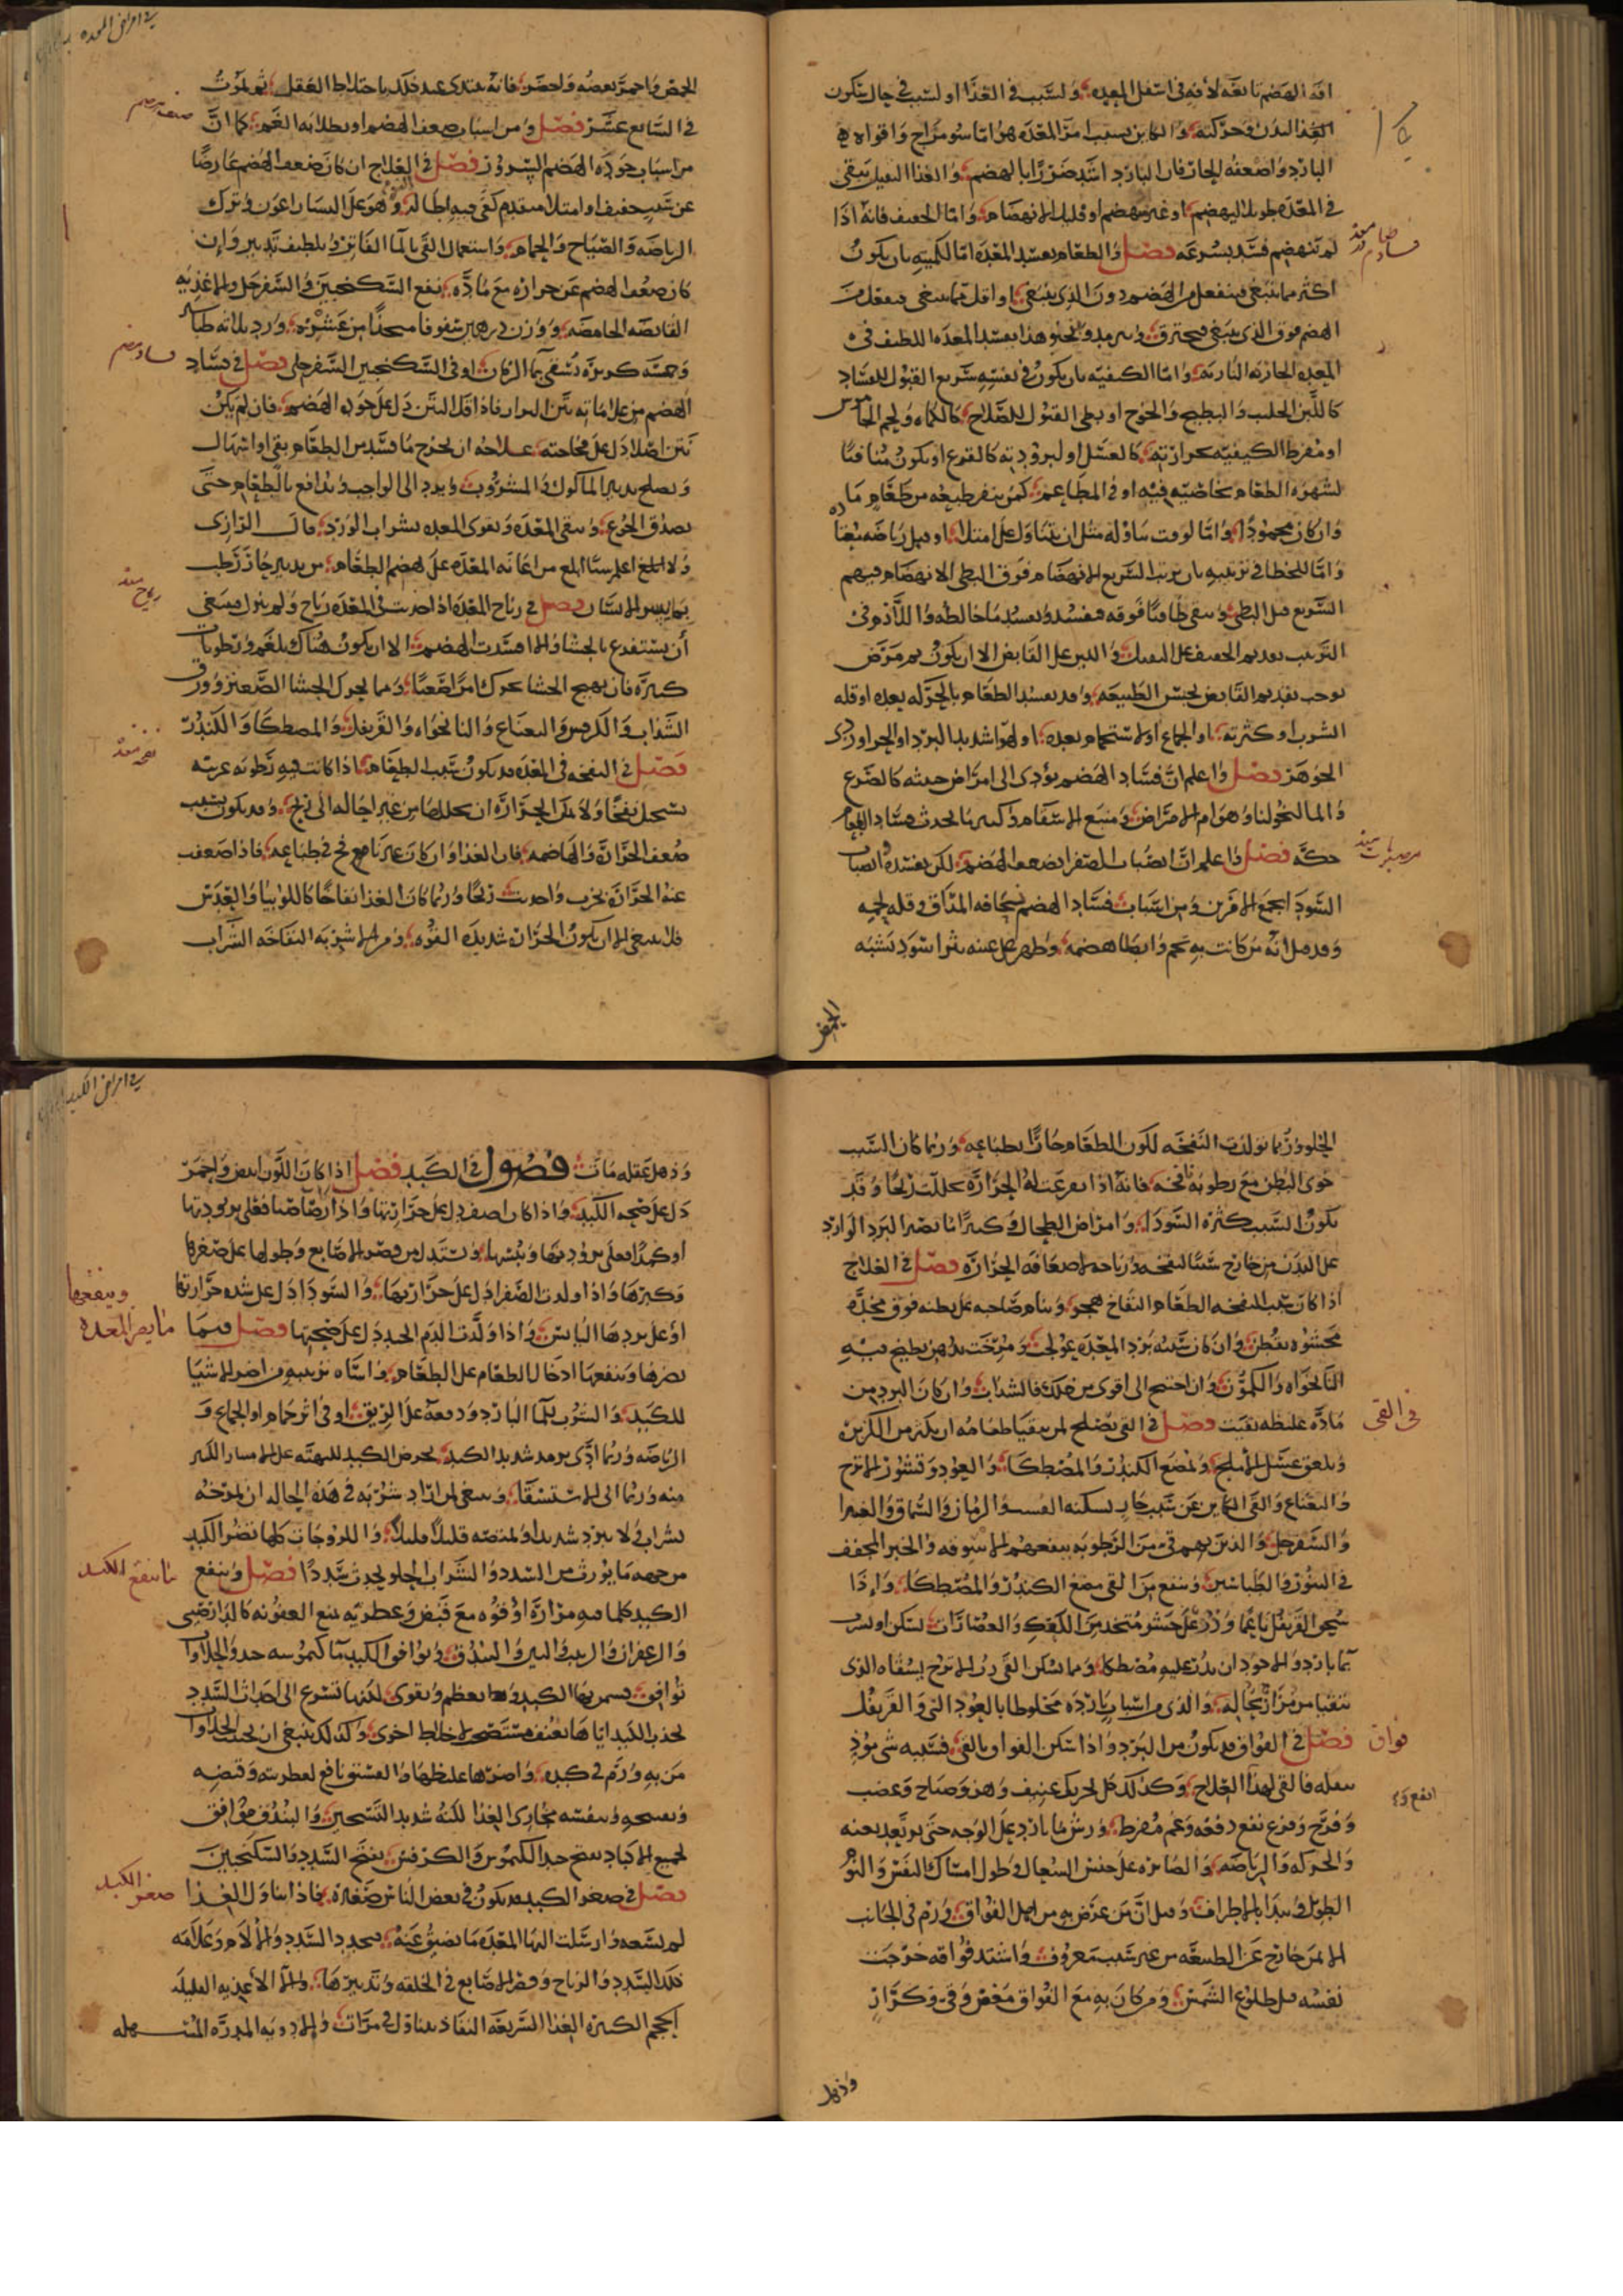 افة الهضم تابعة لافة في اسفل المعدة والسبب في الغذا او لسبب في حال سكون
البدن وحركته والكاين بسبب امر المعدة هو اما سو مزاج واقواه
البارد واضعفه الحار فان البارد اشد ضررا بالهضم والغذا الثقيل يبقى
في المعدة طويلا لا ينهضم او غير منهضم او قليل الانهضام واما الخفيف فانه اذا
لم ينهضم فسد بسرعة فصل والطعام يفسد في المعدة اما لكميته بان يكون
اكثر مما ينبغي فينفعل من الهضم دون الذي ينبغي او اقل مما ينبغي فينفعل من
الهضم فوق الذي ينبغي فيحترق وبهذا يفسد الغذا اللطيف في
المعدة الحارة النارية واما لكيفيته بان يكون في نفسه سريع القبول للفساد
كاللبن الحليب والبطيخ والخوخ او بطي القبول للصلاح كالكماه ولحم الجاموس
او مفرط الكيفية بحرارته كالعسل او لبرودته كالقرع او يكون منافيا
لشهوة الطعام بخاصية فيه او في الطاعم كمن ينفر طبعه من طعام ما
وان كان محمودا واما لوقت تناوله مثل ان يتناول على امتلا او قبل رياضة معتادة
واما للخطا في ترتيبه بان يرتب السريع الانهضام فوق البطي الانهضام فينهضم
السريع قبل البطي ويبقى طافيا فوقه فيفسد ويفسد ما خالطه والواجب في
الترتيب تقديم الخفيف على الثقيل واللين على القابض الا ان يكون ثم مرض
يوجب تقديم القابض لحبس الطبيعة وقد يفسد الطعام بالحركة بعده او قلة
الشرب او كثرته او الجماع او الاستحمام بعده او لهوا شديد البرد او الحر او ردي
الجوهر فصل واعلم ان فساد الهضم يودي الى امراض خبيثة كالصرع
والمالنخوليا وهو ام الامراض ومنبع الاسقام وكثيرا ما يحدث فساد الطعام
حكة فصل واعلم ان انصباب الصفرا يضعف الهضم لكن يفسده وانصباب
السودا يجمع الامرين ومن اسباب فساد الهضم سخافة المذاق وقلة لحمه
وقد قيل انه من كانت به تخم وابطا هضمه وظهر على عينه بثر اسود يشبه
الحمص
فساد طعام در معده
في امراض المعده
الحمص واحمر بعضه واخضر فانه يبتدي عند ذلك باختلاط العقل ثم يموت
في السابع عشر فصل ومن اسباب ضعف الهضم او بطلانه الغم كما ان
من اسباب جودة الهضم السرور فصل في العلاج ان كان ضعف الهضم عارضا
عن سبب خفيف او امتلا متقدم كفى فيه اطالة النوم وهو على اليسار اعون وترك
الرياضة والصياح والحمام واستعمال القي بالما الفاتر وتلطيف تدبير وان
كان ضعف الهضم عن حرارة مع مادة نفع السكنجبين والسفرجل والاغذية
القابضة الحامضة ووزن درهمين سفوفا متخذا من عشرة ورد ثلاثة طباشير
وخمسة كزبرة تسقى بما الرمان او في السكنجبين السفرجلي فصل في فساد
الهضم من علاماته نتن البراز فاذا قل النتن دل على جودة الهضم فان لم يكن
نتن اصلا دل على فجاجته علاجه ان يخرج ما فسد من الطعام بقي او اسهال
ويصلح تدبير الماكول والمشروب ويرد الى الواجب ويدافع بالطعام حتى
يصدق الجوع وينقى المعدة وتقوى المعدة بشراب الورد قال الرازي
ولا اعلم شيئا ابلغ من اعانة المعدة على هضم الطعام من تدبير حار رطب
يماس الانسان فصل في رياح المعدة اذا حدثت في المعدة رياح ولم تنزل فينبغي
ان يستفرغ بالجشا والا افسدت الهضم الا ان يكون هناك بلغم ورطوبات
كثيرة فان تهييج الجشا يحرك امرا صعبا ومما يحرك الجشا الصعتر وورق
السذاب والكرفس والنعناع والنانخواه والقرنفل والمصطكا والكندر
فصل في النفخة في المعدة قد تكون بسبب الطعام اذا كانت فيه رطوبة غريبة
تستحيل نفخا ولا يمكن الحرارة ان تحللها من غير احالة الى ريح وقد يكون بسبب
ضعف الحرارة الهاضمة فان الغذا وان كان غير نافخ في طباعه فاذا ضعفت
عنه الحرارة بخرته واحدثت ريحا وربما كان الغذا نفاخا كاللوبيا والعدس
فلا ينبغي الا ان يكون الحرارة شديدة القوة ومن الاشربة النفاخة الشراب
ضعف هضم
فساد هضم
رياح معده
نفخ معده
الحلو وربما تولدت النفخة لكون الطعام حارا بطباعه وربما كان السبب
خوى البطن مع رطوبة نافخة فانه اذا تفرغت له الحرارة حللت ريحا وقد
يكون السبب كثرة السودا وامراض الطحال وكثيرا ما يصير البرد الوارد
على البدن من خارج سببا لنفخة ورياح لاضعافه الحرارة فصل في العلاج
اذا كان سبب النفخة الطعام النفاخ هجر وينام صاحبه على بطنه فوق مخدة
محشوة بقطن وان كان سببه برد المعدة عولج ومرخت بدهن يطبخ فيه
النانخواه والكمون وان احتيج الى اقوى من ذلك فالسذاب وان كان البرد من
مادة غليظة نقيت فصل في القي يصلح لمن يتقيا طعامه ان يكثر من الكزبرة
ويلعق عسل الاملج ويمضغ الكندر والمصطكا والعود وقشور الاترج
والنعناع والقي الكاين عن سبب حار يسكنه الرمان والسماق والغبيرا
والسفرجل والذين بهم قي من الرطوبة ينفعهم الاسوقة والخبز المجفف
في التنور والطباشير وينفع من القي مضغ الكندر والمصطكا واذا
سحق القرنفل ناعما وذر على حسو متخذ من الكعك والعصارات سكن او شرب
بما بارد والاجود ان يذر عليه مصطكا ومما يسكن القي رب الاترج يسقاه الذي
يتقيا من مرار بحاله والذي من اسباب باردة مخلوطا بالعود الني والقرنفل
فصل في الفواق قد يكون من البرد واذا سكن الفواق بالقي فسببه شي موذ
بنقله فالقي لهذا العلاج وكذلك كل تحريك عنيف وهز وصياح وغضب
وفرح وفزع نفع دفعة وغم مفرط ورش ما بارد على الوجه حتى يرتعد بغتة
والحركة والرياضة والمصابرة على حبس السعال وطول امساك النفس والنوم
الطويل وشد الاطراف وقيل ان من عرض به من اجل الفواق ورم في الجانب
الايمن خارج عن الطبيعة من غير سبب معروف واشتد فواقه خرجت
نفسه قبل طلوع الشمس ومن كان به مع الفواق مغص وقي وكزاز
وذهل
في القي
فواق
في امراض الكبد
وذهل عقله مات فصول في الكبد فصل اذا كان اللون ابيض واحمر
دل على صحة الكبد واذا كان اصفر دل على حرارتها واذا رصاصيا فعلى برودتها
او كمدا فعلى برودتها ويبسها ويستدل من قصر الاصابع وطولها على صغرها
وكبرها واذا ولدت الصفرا دل على حرارتها والسودا دل على شدة حرارتها
او على بردها اليابس واذا ولدت الدم الجيد دل على صحتها فصل فيما
يضرها وينفعها ادخال الطعام على الطعام واساة ترتيبه من اضر الاشيا
للكبد والشرب للما البارد دفعة على الريق او في اثر حمام او الجماع و
الرياضة وربما ادى الى برد شديد الكبد لحرص الكبد الملتهبة على الامتيار الكثير
منه وربما الى الاستسقا وينبغي لمن اراد شربه في هذه الحالة ان يمزجه
بشراب ولا يبرد شديدا ويمتصه قليلا قليلا واللزوجات كلها تضر الكبد
من جهة ما يورث من السدد والشراب الحلو يحدث سددا فصل وينفع
الكبد كلما فيه مرارة او قوة مع قبض وعطرية تمنع العفونة كالدارصيني
والزعفران والزبيب والتين والبندق ويوافق الكبد ما كيموسه جيد والحلاوات
توافق تسمن بها الكبد وتعظم وتقوى لكنها تسرع الى احداث السدد
لجذب الكبد اياها بعنف مستصحبة اخلاط اخرى ولذلك ينبغي ان يجتنب الحلاوات
من به ورم في كبده واضرها غليظها والفستق نافع لعطريته وقبضه
وتفتيحه وتنقيته مجاري الغذا لكنه شديد التسخين والبندق موافق
لجميع الاكباد يفتح جيد الكيموس والكرفس يفتح السدد والسكنجبين
فصل في صغر الكبد قد يكون في بعض الناس صغيرة فاذا تناول الغذا
لم تسعه وارسلت اليها المعدة ما يضيق عنه فيحدد السدد والالام وعلامة
ذلك السدد والرياح وقصر الاصابع في الخلقة وتدبيرها الاغذية القليلة
الحجم الكثيرة الغذا السريعة النفاذ تتناول في مرات والادوية المدرة المسهلة
وينفعها
ما يضر المعده
ما ينفع الكبد
صغر الكبد